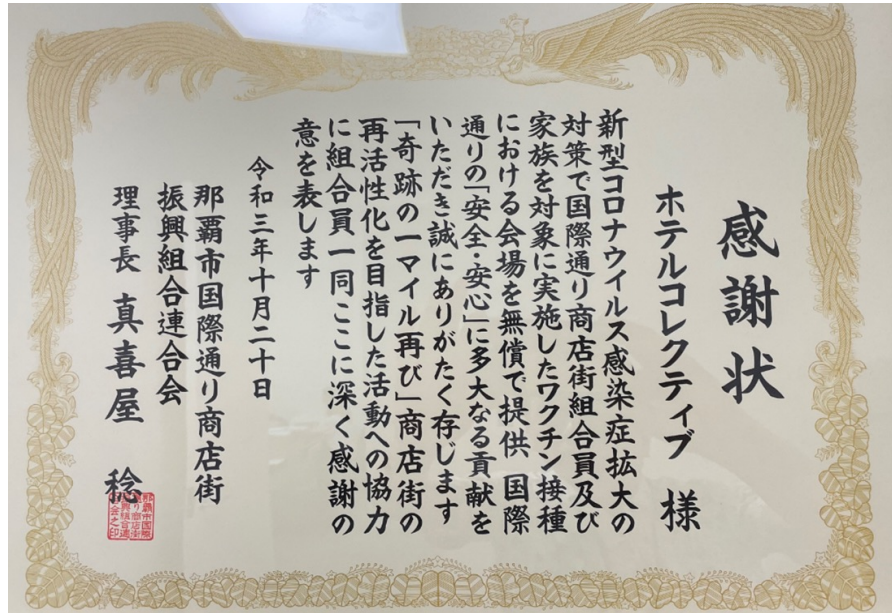 感謝状
ホテルコレクティブ 様
新型コロナウイルス感染症拡大の
対策で国際通り商店街組合員及び
家族を対象に実施したワクチン接種
における会場を無償で提供 国際
通りの「安全・安心」に多大なる貢献を
いただき誠にありがたく存じます
「奇跡の一マイル再び」商店街の
再活性化を目指した活動への協力
に組合員一同ここに深く感謝の
意を表します
令和三年十月二十日
那覇市国際通り商店街
振興組合連合会
理事長 真喜屋 稔
那覇市国際
通り商店街
振興組合連
合会之印